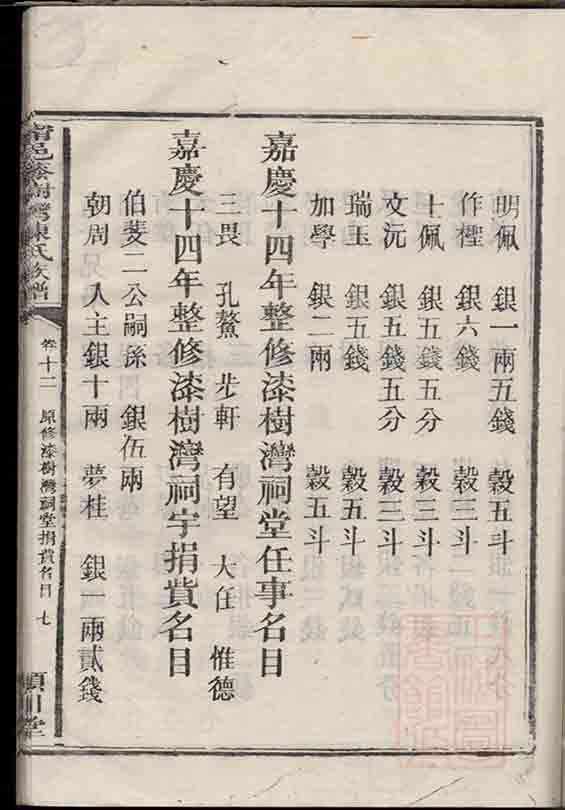 明佩 銀一兩五錢 穀五斗
作檉 銀六錢 穀三斗
士佩 銀五錢五分 穀三斗
文沅 銀五錢五分 穀三斗
瑞玉 銀五錢 穀五斗
加學 銀二兩 穀五斗
嘉慶十四年整修漆樹灣祠堂任事名目
三畏 孔鰲 步軒 有望 大任 惟德
嘉慶十四年整修漆樹灣祠宇捐貲名目
伯菱二公嗣孫 銀伍兩
朝周 人主銀十兩 夢桂 銀一兩貳錢
甯邑漆樹灣陳氏族譜
卷十二 原修漆樹灣祠堂捐貲名目 七
潁川堂